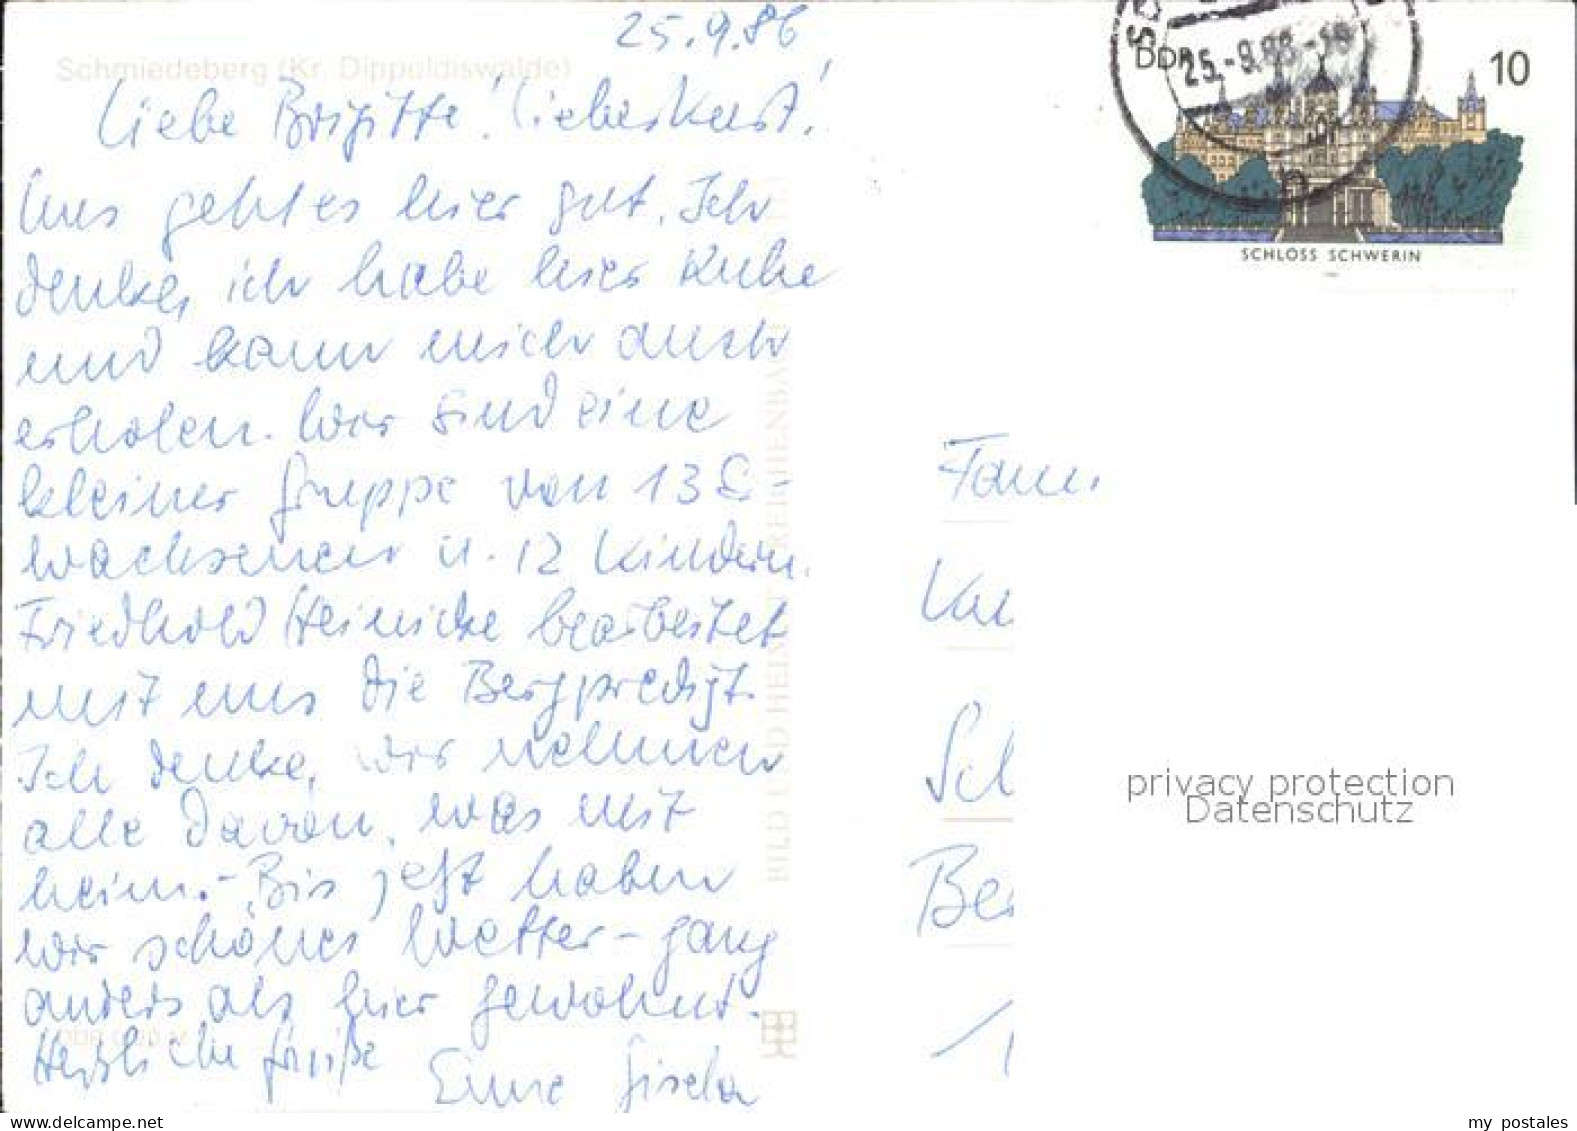 25.9.86
Schmiedeberg (Kr. Dippoldiswalde)
Liebe Brigitte!
Uns geht es hier gut. Ich
denke, ich habe hier Ruhe
und kann mich auch
erholen. Wir sind eine
kleiner Gruppe von 13 Er-
wachsenen u. 12 Kindern.
Friedhold Heinicke bearbeitet
mit uns die Bergpredigt.
Ich denke, wir nehmen
alle davon was mit
heim. - Bis jetzt haben
wir schönes Wetter - ganz
anders als hier gewohnt.
Herzliche Grüße
Eure Gisela
BILD UND HEIMAT REICHENBACH
DDR
25.-9.86-18
10
SCHLOSS SCHWERIN
Fam.
Sch
Ber
1
privacy protection
Datenschutz
my postales